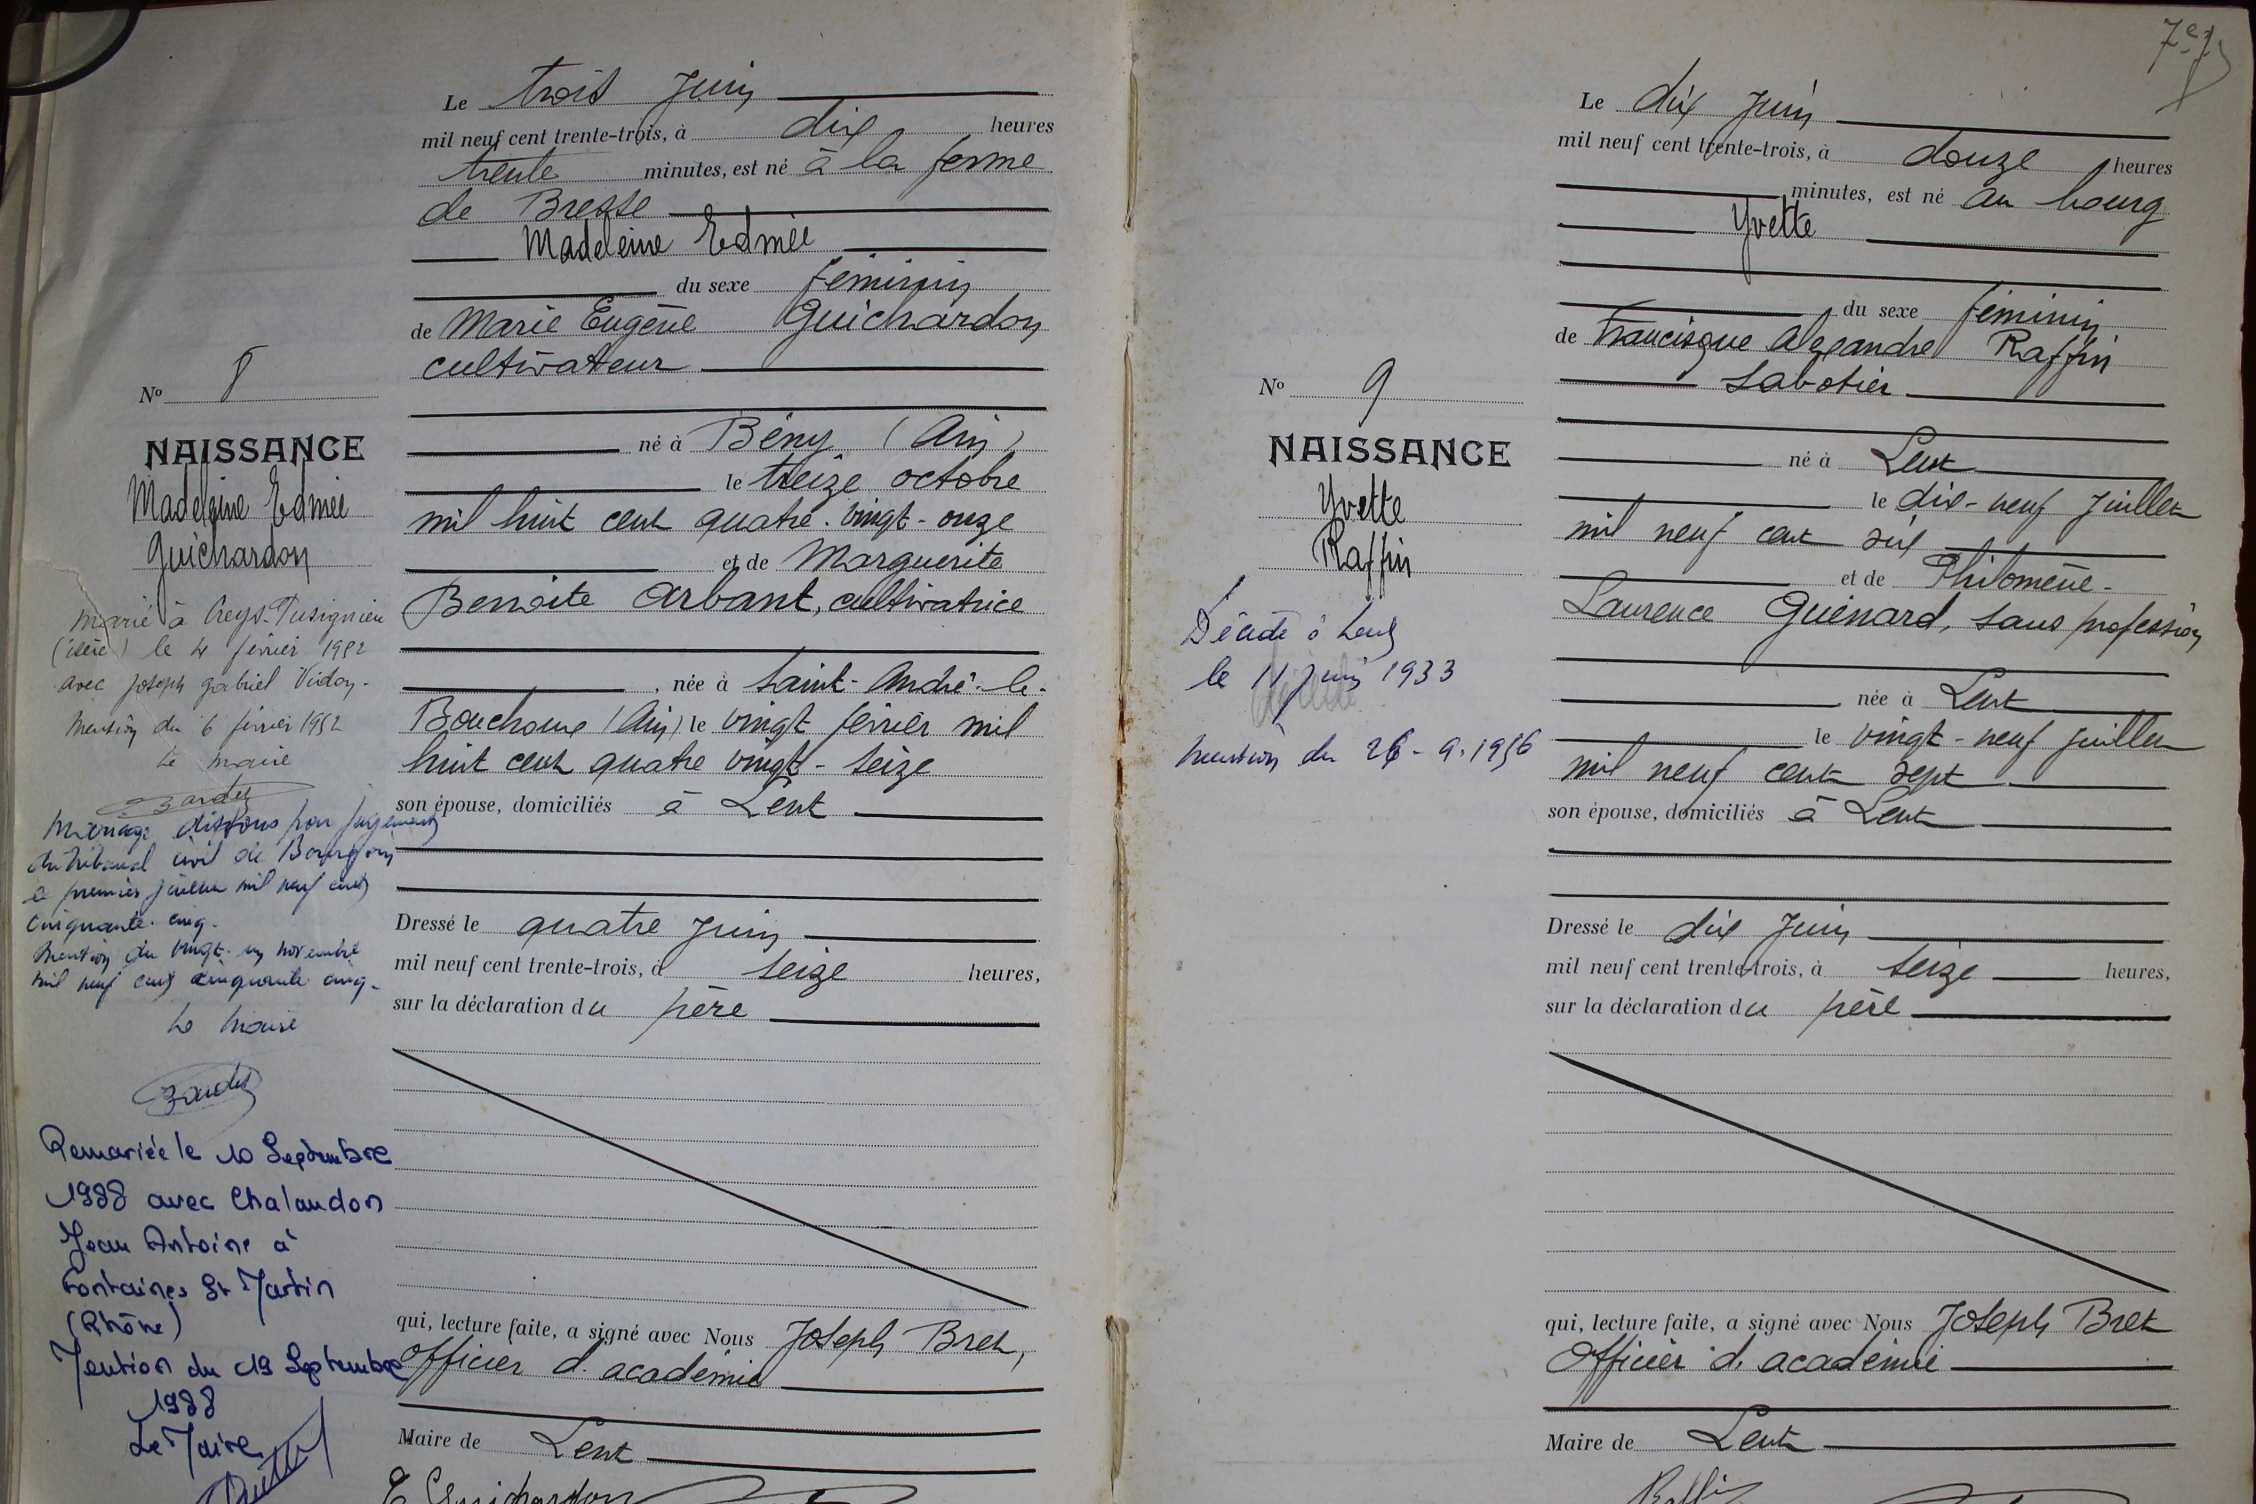 Le trois Juin
mil neuf cent trente-trois, à dix heures
trente minutes, est né à la ferme
de Bresse
Madeleine Edmée
du sexe féminin
de Marie Eugène Guichardon
cultivateur
né à Bény (Ain)
le treize octobre
mil huit cent quatre-vingt-onze
et de Marguerite
Benoite Arbant, cultivatrice
, née à Saint-André-le-
Bouchoux (Ain) le vingt février mil
huit cent quatre vingt-seize
son épouse, domiciliés à Lent
Dressé le quatre Juin
mil neuf cent trente-trois, à seize heures,
sur la déclaration du père
qui, lecture faite, a signé avec Nous Joseph Bret,
Officier d'académie
Maire de Lent
E Guichardon
No 8
NAISSANCE
Madeleine Edmée
Guichardon
Marié à Creys-Pusignieu
(isère) le 4 février 1952
avec Joseph Gabriel
Mention du 6 février 1952
Le maire
Mariage dissous par jugement
du tribunal civil de Bourgoin
le premier juillet mil neuf cent
cinquante-cinq.
Mention du vingt-un novembre
mil neuf cent cinquante cinq.
Le Maire
Remariée le 10 Septembre
1988 avec Chalandon
Jean Antoine à
Fontaines St Martin
(Rhône)
Mention du 19 Septembre
1988
Le Maire
Le dix Juin
mil neuf cent trente-trois, à douze heures
minutes, est né au bourg
Yvette
du sexe féminin
de Francisque Alexandre Raffin
Sabotier
né à Lent
le dix-neuf Juillet
mil neuf cent six
et de Philomène-
Laurence Guénard, sans profession
née à Lent
le vingt-neuf juillet
mil neuf cent sept
son épouse, domiciliés à Lent
Dressé le dix Juin
mil neuf cent trente-trois, à seize heures,
sur la déclaration du père
qui, lecture faite, a signé avec Nous Joseph Bret
Officier d'académie
Maire de Lent
Raffin
No 9
NAISSANCE
Yvette
Raffin
Décédé à Lent
le 11 Juin 1933
Mention du 26-9-1956